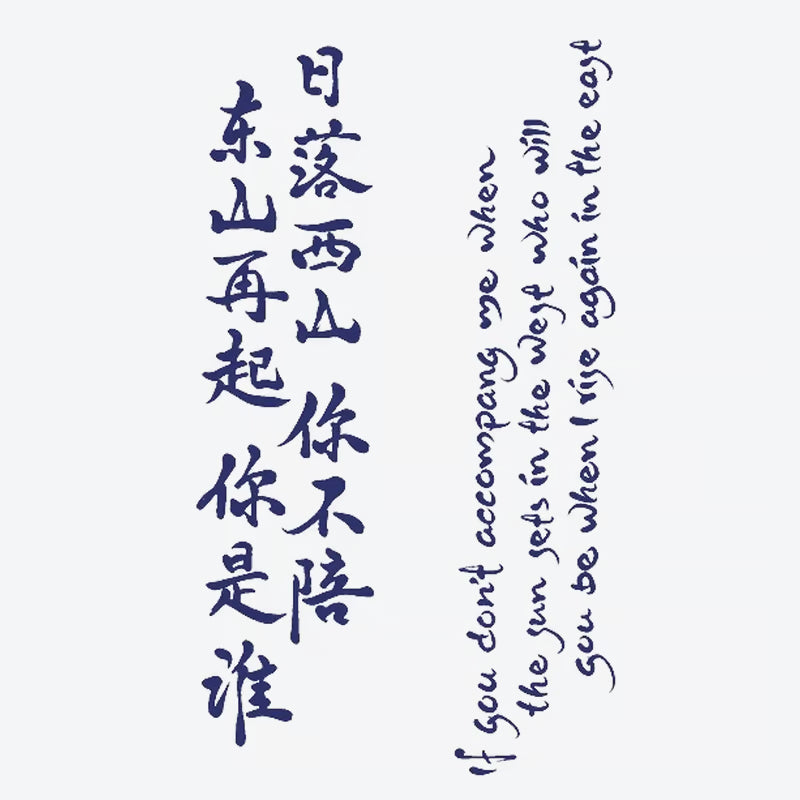 日落西山 你不陪
东山再起 你是谁
If you don't accompany me when
the sun sets in the west who will
you be when I rise again in the east